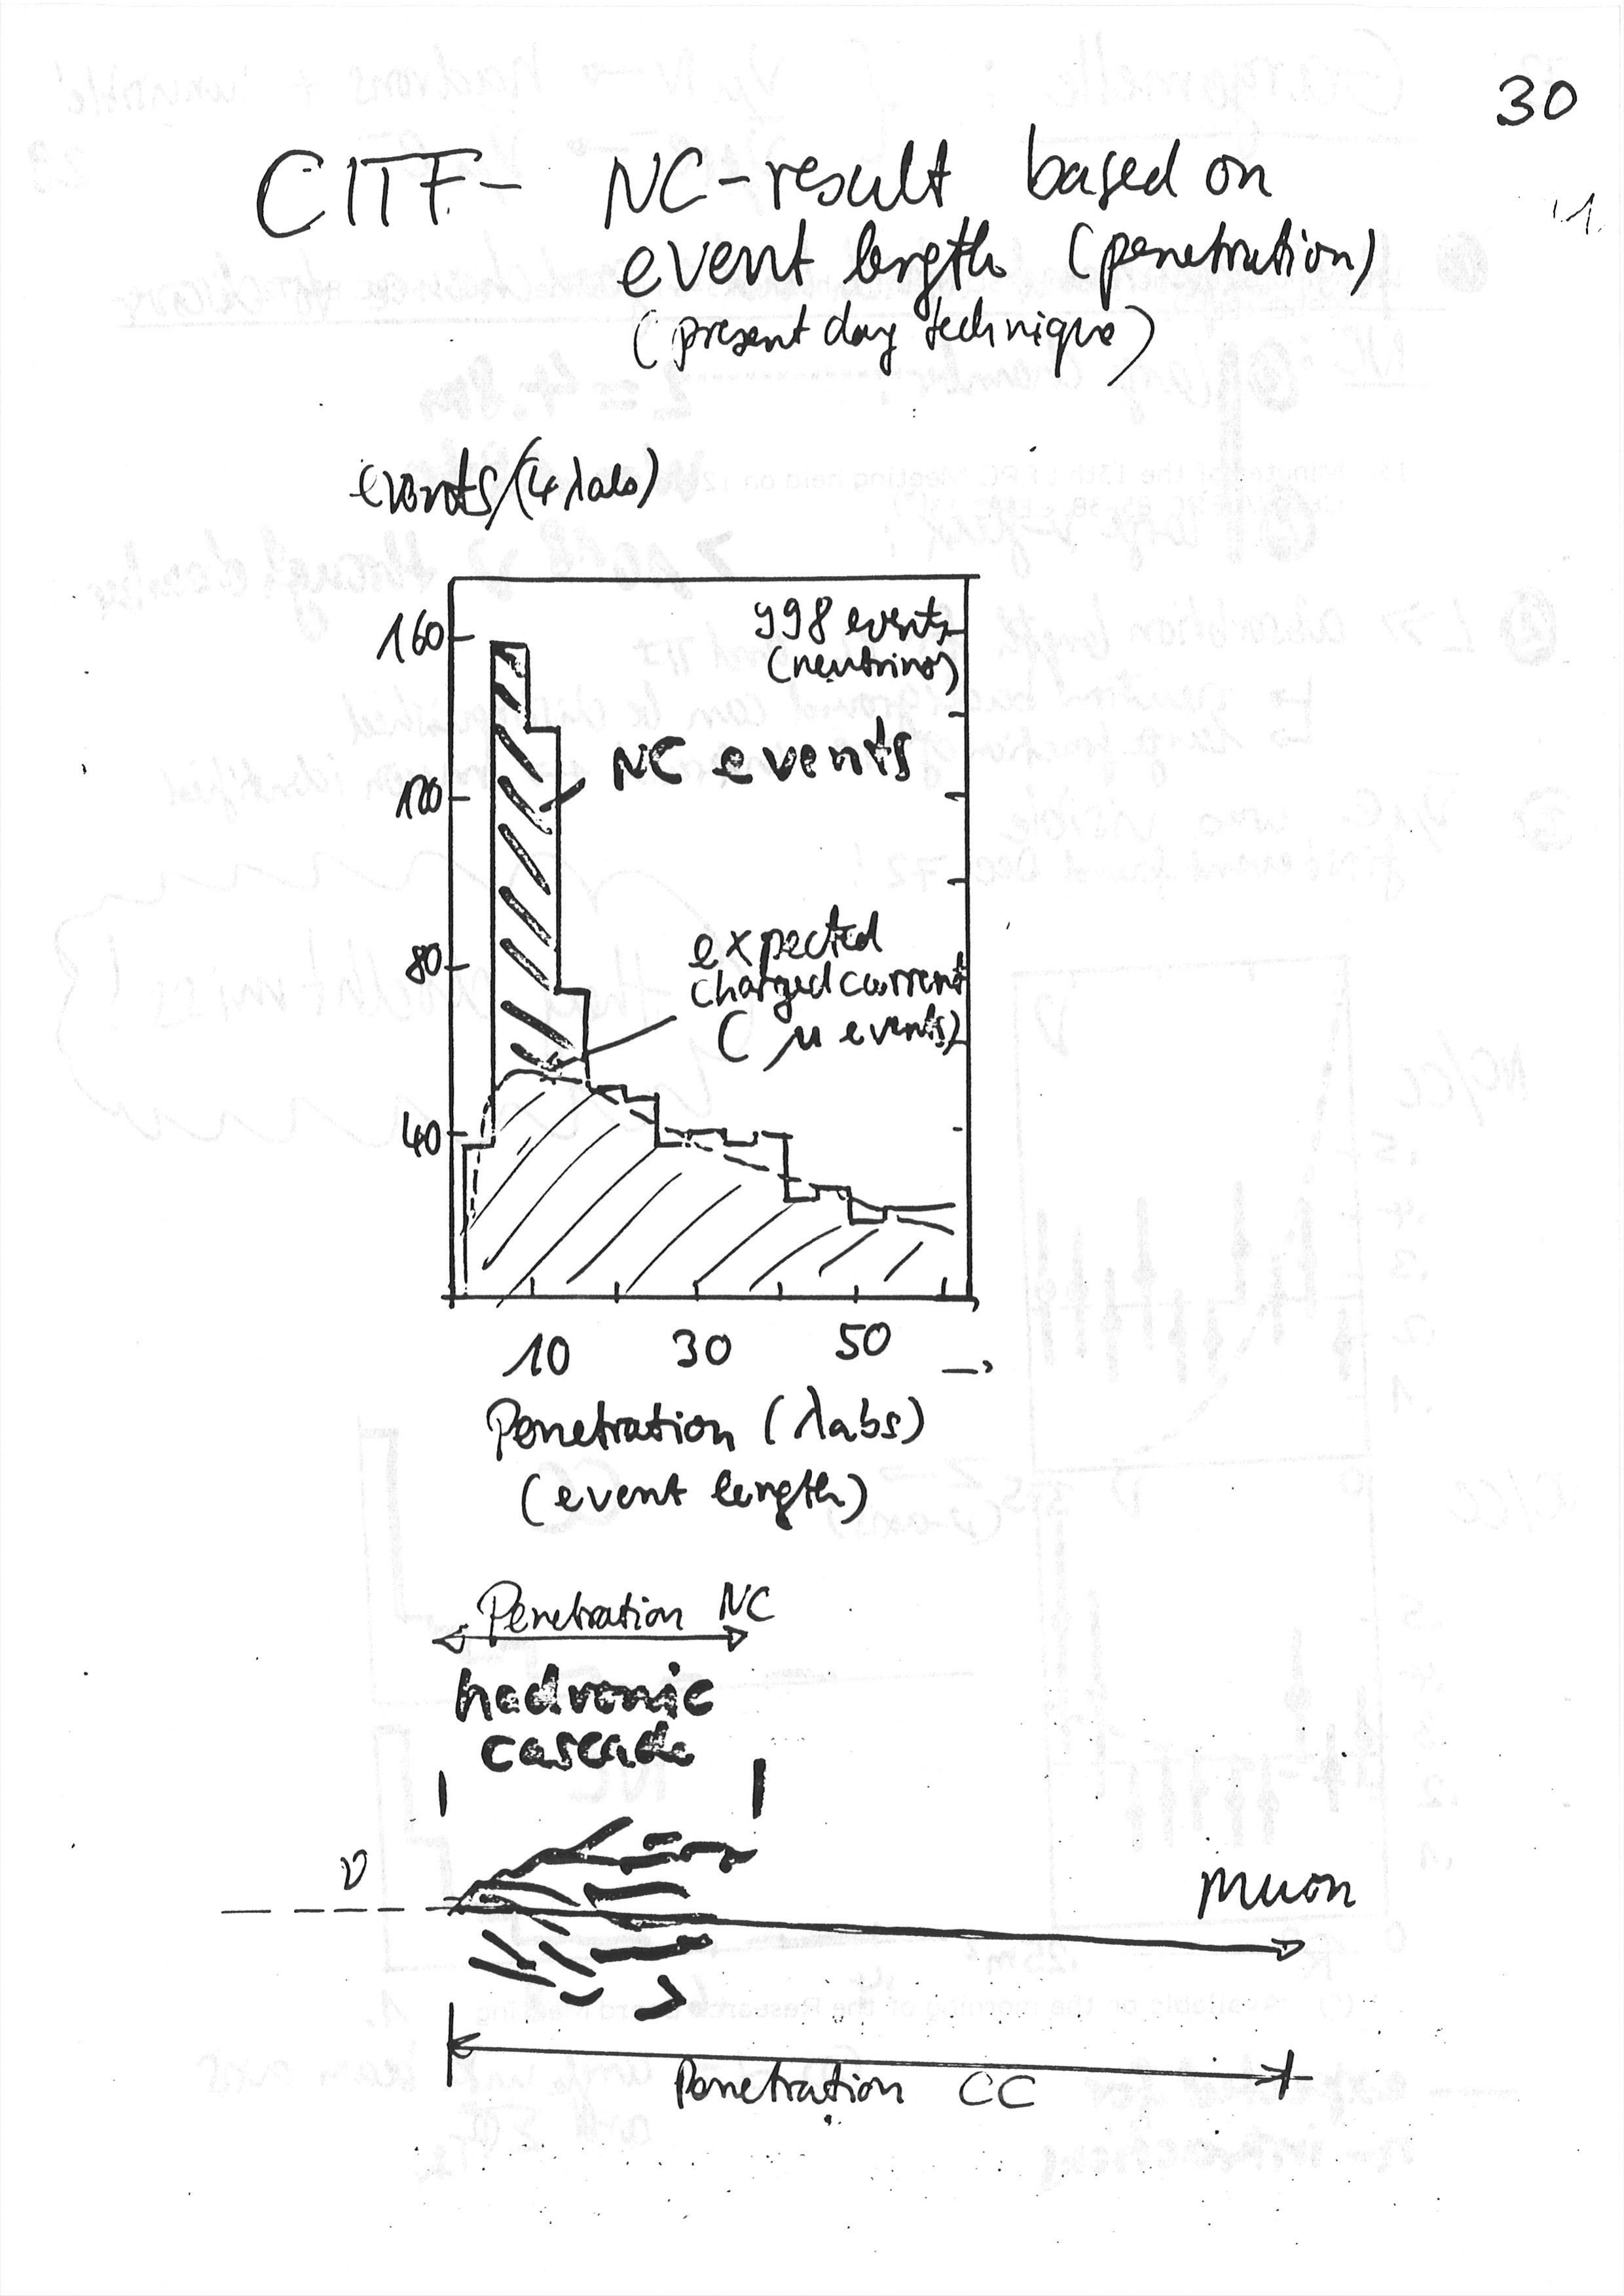 30
CITF- NC-result based on
event length (penetration)
(present day technique)
events/(4 λabs)
160
998 events
(neutrinos)
NC events
120
80
expected
charged current
(μ events)
40
10 30 50
Penetration (λabs)
(event length)
Penetration NC
hadronic
cascade
ν
muon
Penetration CC